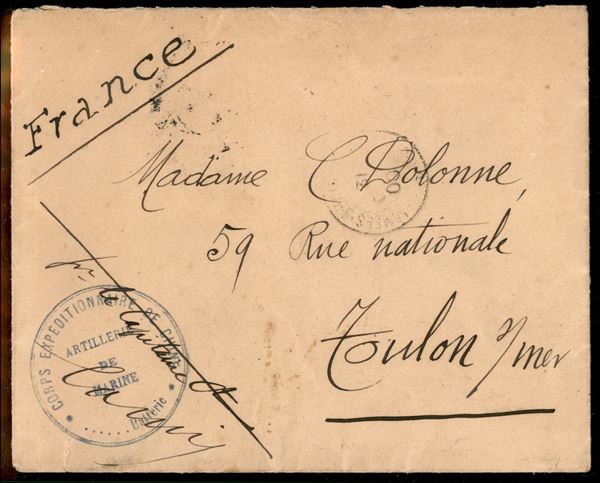 France
Madame C Dolonne,
59 Rue nationale
Toulon s/mer
pr. le Capitaine
CORPS EXPÉDITIONNAIRE DE CHINE
ARTILLERIE
DE
MARINE
Batterie